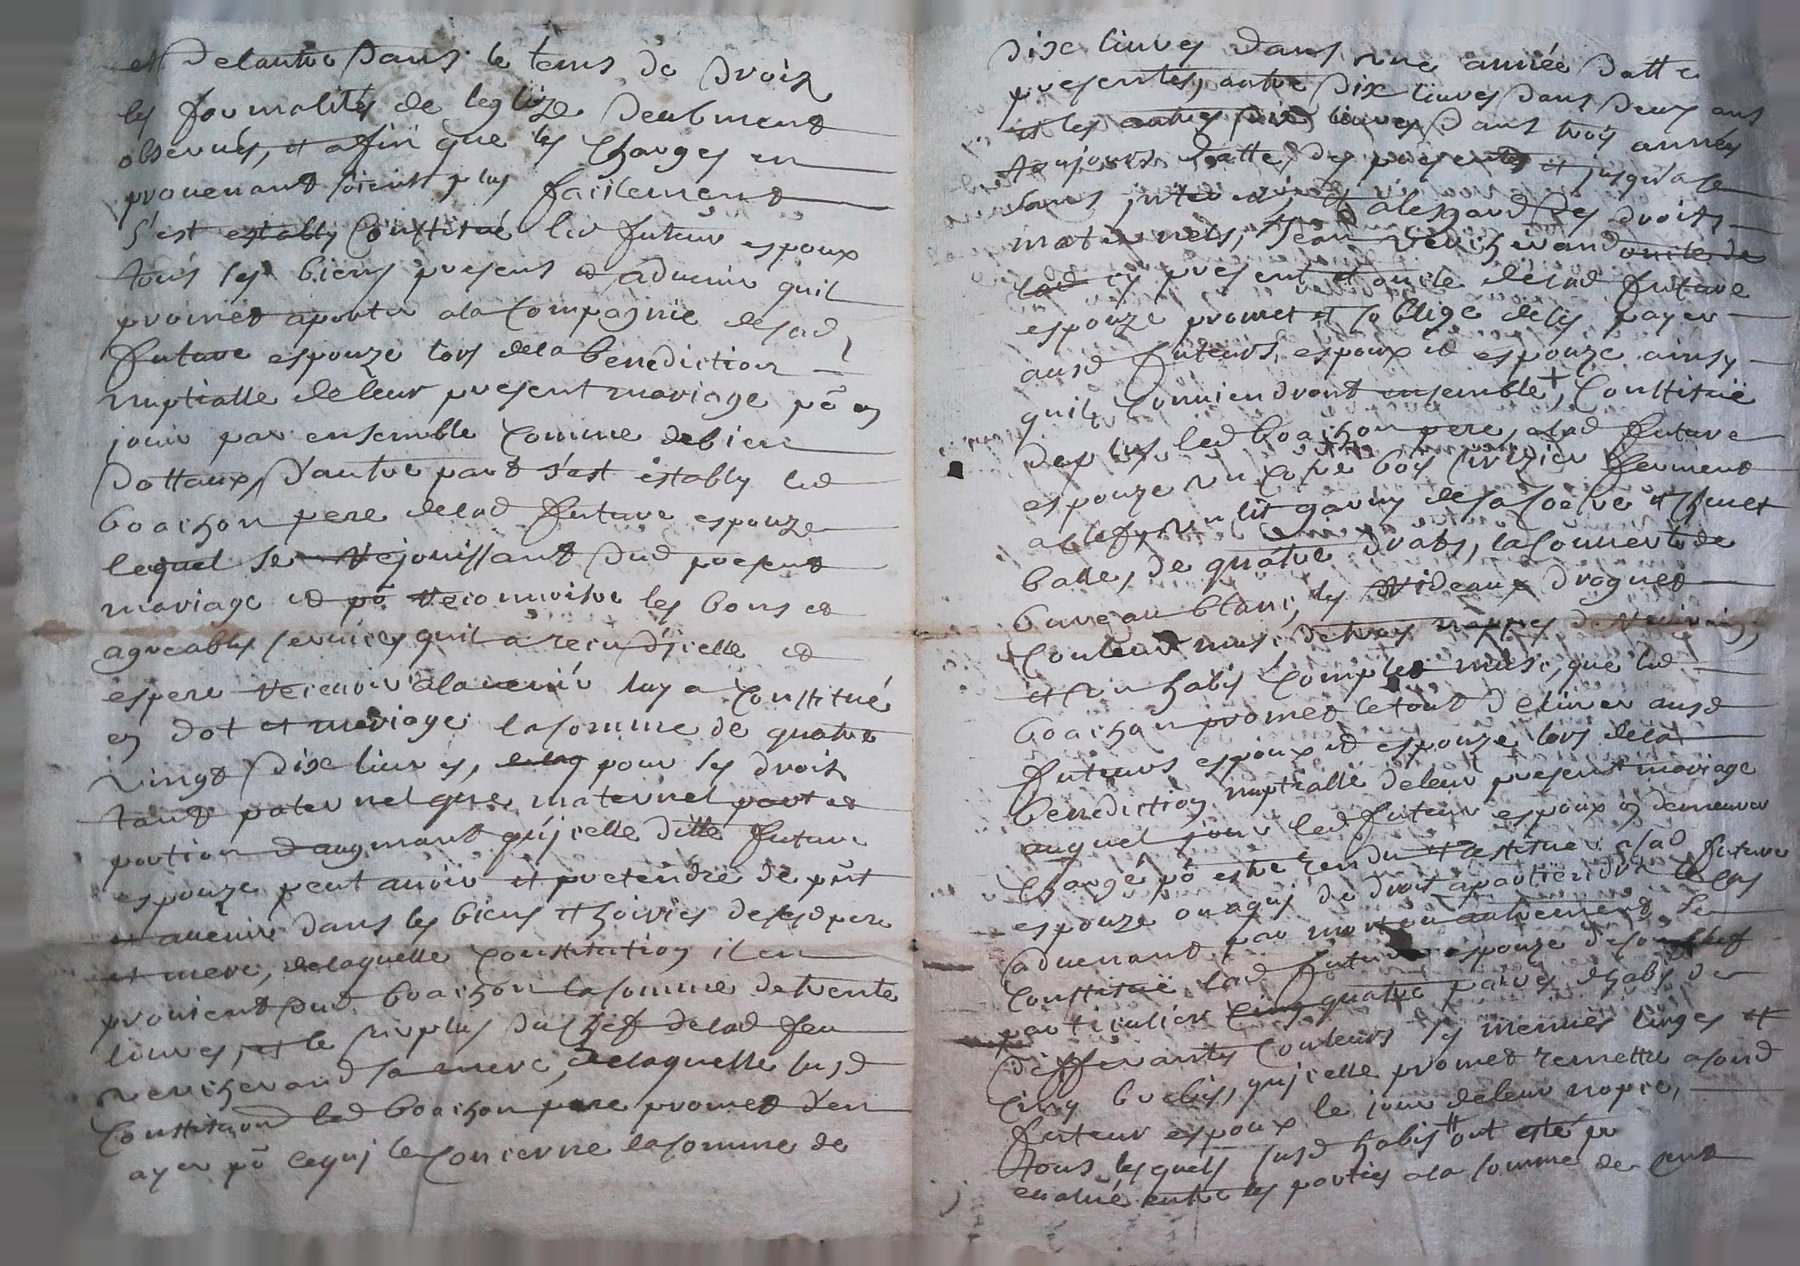 et de lautre dans le tems de droit
les formalités de leglize deubment
observées, et affin que les charges en
provenant soient plus facilement
s'est estably constitué led futeur espoux
tous ses biens presens et advenir quil
promet aporter a la compagnie de lad
future espouze lors de la benediction
nuptialle de leur present mariage po en
jouir par ensemble comme de bien
dottaux, d'autre part s'est estably led
boachon pere de lad future espouze
lequel se rejouissant dud present
mariage et po recognoistre les bons et
agreables services quil a receu d'icelle et
espere recevoir a lavenir luy a constitué
en dot et mariage la somme de quatre
vingt dix livres, pour ses droits
tant paternel que maternel part et
portion d augmant qu'icelle ditte future
espouze peut avoir et pretendre de pnt
et avenir dans les biens et hoiries desesd pere
et mere, de laquelle constitution il en
provient dud boachon la somme de trente
livres, et le surplus du chef de lad feu
sa mere, de laquelle susd
constitution led boachon pere promet d'en
ayer po ce qui le concerne la somme de
dix livres dans une année datte
presentes, autre dix livres dans deux ans
et les autres dix livres dans trois années
toujours datte des presentes et jusqu'a ce
sans interest, et a lesgard des droits
maternels, Jean oncle de
lad ey present et oncle de lad future
espouze promet et soblige de les payer
ausd futeurs espoux et espouze ainsy
quils conviendront ensemble + constitué
de plus led boachon pere a lad future
espouze un cofre bois fermant
a clef, un lit garny de sa coetre et chuet
balle, de quatre draps, la couverte de
bureau blanc, les rideaux droguet
couleur musc, de trois nappes
et un habis complet musc, que led
boachon promet le tout delivrer ausd
futeurs espoux et espouze lors de la
benediction nuptialle de leur present mariage
auquel jour led futeur espoux en demeurer
chargé po estre rendu et restitué a lad future
espouze ou a qui de droit apartiendra le cas
advenant par mort ou autrement, se
constitué lad future espouze de son chef
particulier cinq quatre paires d'habis de
differants couleurs ses menues linges et
cinq brebis, qu'icelle promet remettre a sond
futeur espoux le jour de leur nopce,
tous lesquels susd habis ont esté
evalué entre les parties a la somme de cent